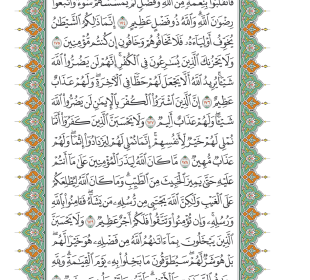 فَٱنقَلَبُوا۟ بِنِعْمَةٍ مِّنَ ٱللَّهِ وَفَضْلٍ لَّمْ يَمْسَسْهُمْ سُوٓءٌ وَٱتَّبَعُوا۟
رِضْوَٰنَ ٱللَّهِ وَٱللَّهُ ذُو فَضْلٍ عَظِيمٍ ١٧٤ إِنَّمَا ذَٰلِكُمُ ٱلشَّيْطَٰنُ
يُخَوِّفُ أَوْلِيَآءَهُۥ فَلَا تَخَافُوهُمْ وَخَافُونِ إِن كُنتُم مُّؤْمِنِينَ ١٧٥
وَلَا يَحْزُنكَ ٱلَّذِينَ يُسَٰرِعُونَ فِى ٱلْكُفْرِ إِنَّهُمْ لَن يَضُرُّوا۟ ٱللَّهَ
شَيْـًٔا يُرِيدُ ٱللَّهُ أَلَّا يَجْعَلَ لَهُمْ حَظًّا فِى ٱلْـَٔاخِرَةِ وَلَهُمْ عَذَابٌ
عَظِيمٌ ١٧٦ إِنَّ ٱلَّذِينَ ٱشْتَرَوُا۟ ٱلْكُفْرَ بِٱلْإِيمَٰنِ لَن يَضُرُّوا۟ ٱللَّهَ
شَيْـًٔا وَلَهُمْ عَذَابٌ أَلِيمٌ ١٧٧ وَلَا يَحْسَبَنَّ ٱلَّذِينَ كَفَرُوٓا۟ أَنَّمَا
نُمْلِى لَهُمْ خَيْرٌ لِّأَنفُسِهِمْ إِنَّمَا نُمْلِى لَهُمْ لِيَزْدَادُوٓا۟ إِثْمًا وَلَهُمْ
عَذَابٌ مُّهِينٌ ١٧٨ مَّا كَانَ ٱللَّهُ لِيَذَرَ ٱلْمُؤْمِنِينَ عَلَىٰ مَآ أَنتُمْ
عَلَيْهِ حَتَّىٰ يَمِيزَ ٱلْخَبِيثَ مِنَ ٱلطَّيِّبِ وَمَا كَانَ ٱللَّهُ لِيُطْلِعَكُمْ
عَلَى ٱلْغَيْبِ وَلَٰكِنَّ ٱللَّهَ يَجْتَبِى مِن رُّسُلِهِۦ مَن يَشَآءُ فَـَٔامِنُوا۟ بِٱللَّهِ
وَرُسُلِهِۦ وَإِن تُؤْمِنُوا۟ وَتَتَّقُوا۟ فَلَكُمْ أَجْرٌ عَظِيمٌ ١٧٩ وَلَا يَحْسَبَنَّ
ٱلَّذِينَ يَبْخَلُونَ بِمَآ ءَاتَىٰهُمُ ٱللَّهُ مِن فَضْلِهِۦ هُوَ خَيْرًا لَّهُم
بَلْ هُوَ شَرٌّ لَّهُمْ سَيُطَوَّقُونَ مَا بَخِلُوا۟ بِهِۦ يَوْمَ ٱلْقِيَٰمَةِ وَلِلَّهِ